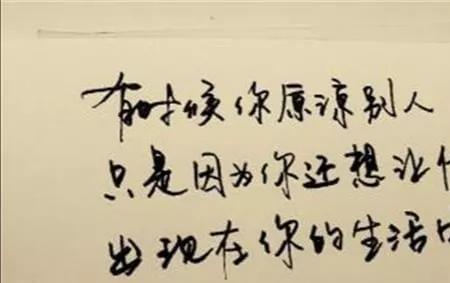 有时候你原谅别人
只是因为你还想让
出现在你的生活